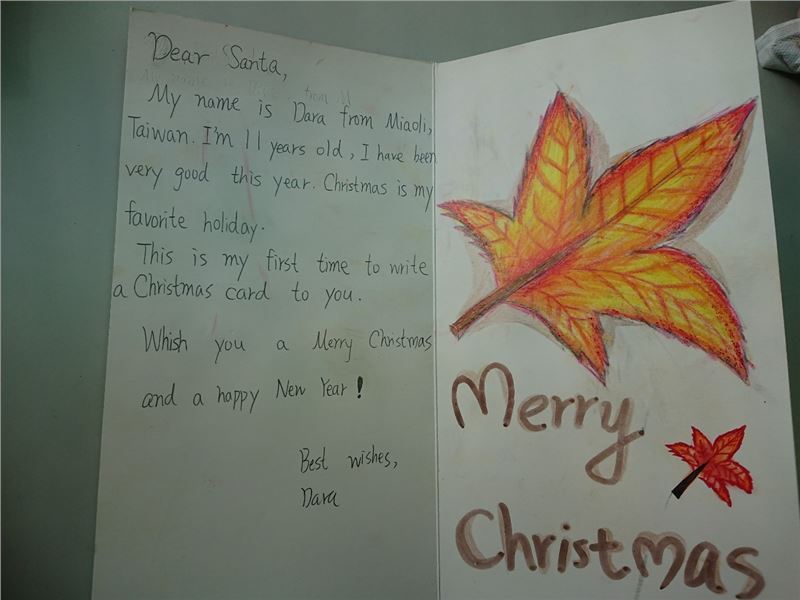 Dear Santa,
My name is Dara from Miaoli,
Taiwan. I'm 11 years old, I have been
very good this year. Christmas is my
favorite holiday.
This is my first time to write
a Christmas card to you.
Whish you a Merry Christmas
and a happy New Year!
Best wishes,
Dara
Merry
Christmas